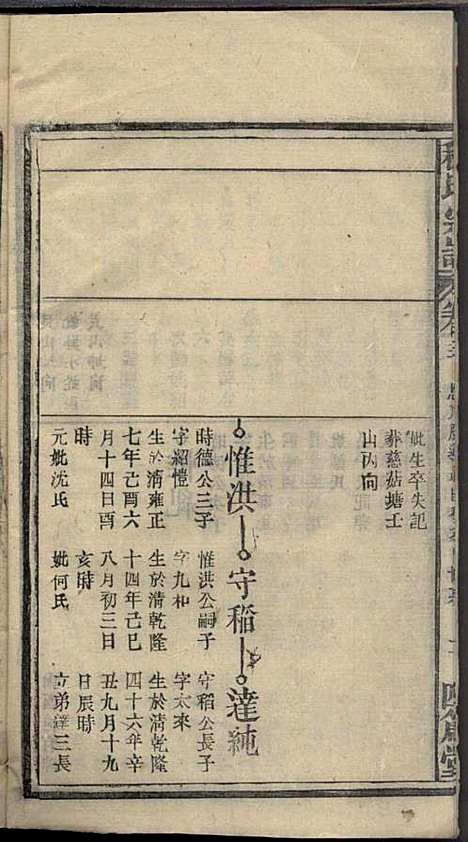 妣生卒失記
葬慈菇塘士
山丙向
惟洪
時德公三子
字紹愷
生於清雍正
七年己酉六
月十四日酉
時
元妣沈氏
守稻
惟洪公嗣子
字九和
生於清乾隆
十四年己巳
八月初三日
亥時
妣何氏
達純
守稻公長子
字太來
生於清乾隆
四十六年辛
丑九月十九
日辰時
立弟達三長